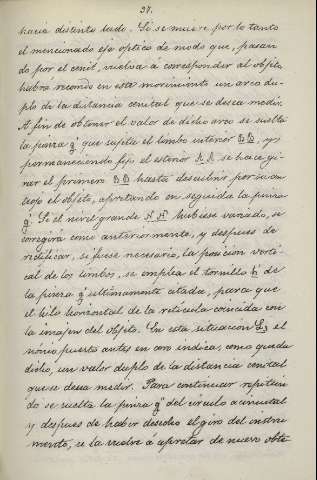 37.
hacia distinto lado. Si se mueve por lo tanto
el mencionado eje óptico de modo que, pasan
do por el cenit, vuelva á corresponder al objeto
habrá recorrido en este movimiento un arco du-
plo de la distancia cenital que se desea medir.
A fin de obtener el valor de dicho arco se suelta
la pinza q que sujeta el limbo interior B B, y
permaneciendo fijo el esterior A A se hace gi-
rar el primero B B hasta descubrir por su an
teojo el objeto, apretando en seguida la pinza
q. Si el nivel grande N N hubiese variado, se
corregirá como anteriormente, y despues de
rectificar, si fuese necesario, la posicion verti-
cal de los limbos, se emplea el tornillo h de
la pinza q ultimamente citada, para que
el hilo horizontal de la reticula coincida con
la imajen del objeto. En esta situacion el
nónio puesto antes en cero indica, como queda
dicho, un valor duplo de la distancia cenital
que se desea medir. Para continuar repitien
do se suelta la pinza q del circulo acimutal
y despues de haber desecho el giro del instru
mento, se la vuelve á apretar de nuevo obte